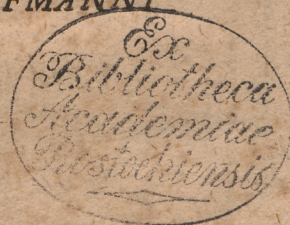 FMANNI
Ex
Bibliotheca
Academiae
Rostochiensis